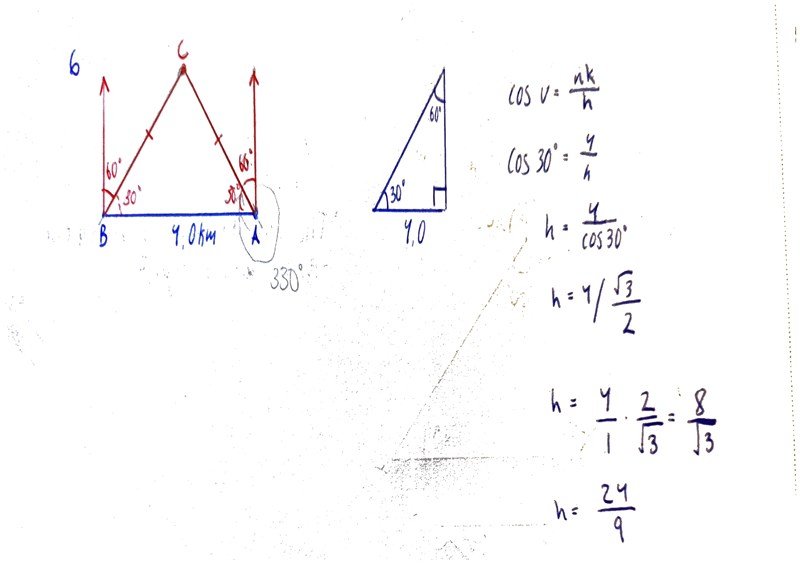 6
C
60° 60°
30° 30°
B 4,0 km A
330°
60°
30°
4,0
cos v = nk/h
cos 30° = 4/h
h = 4/cos 30°
h = 4 / √3/2
h = 4/1 · 2/√3 = 8/√3
h = 24/9